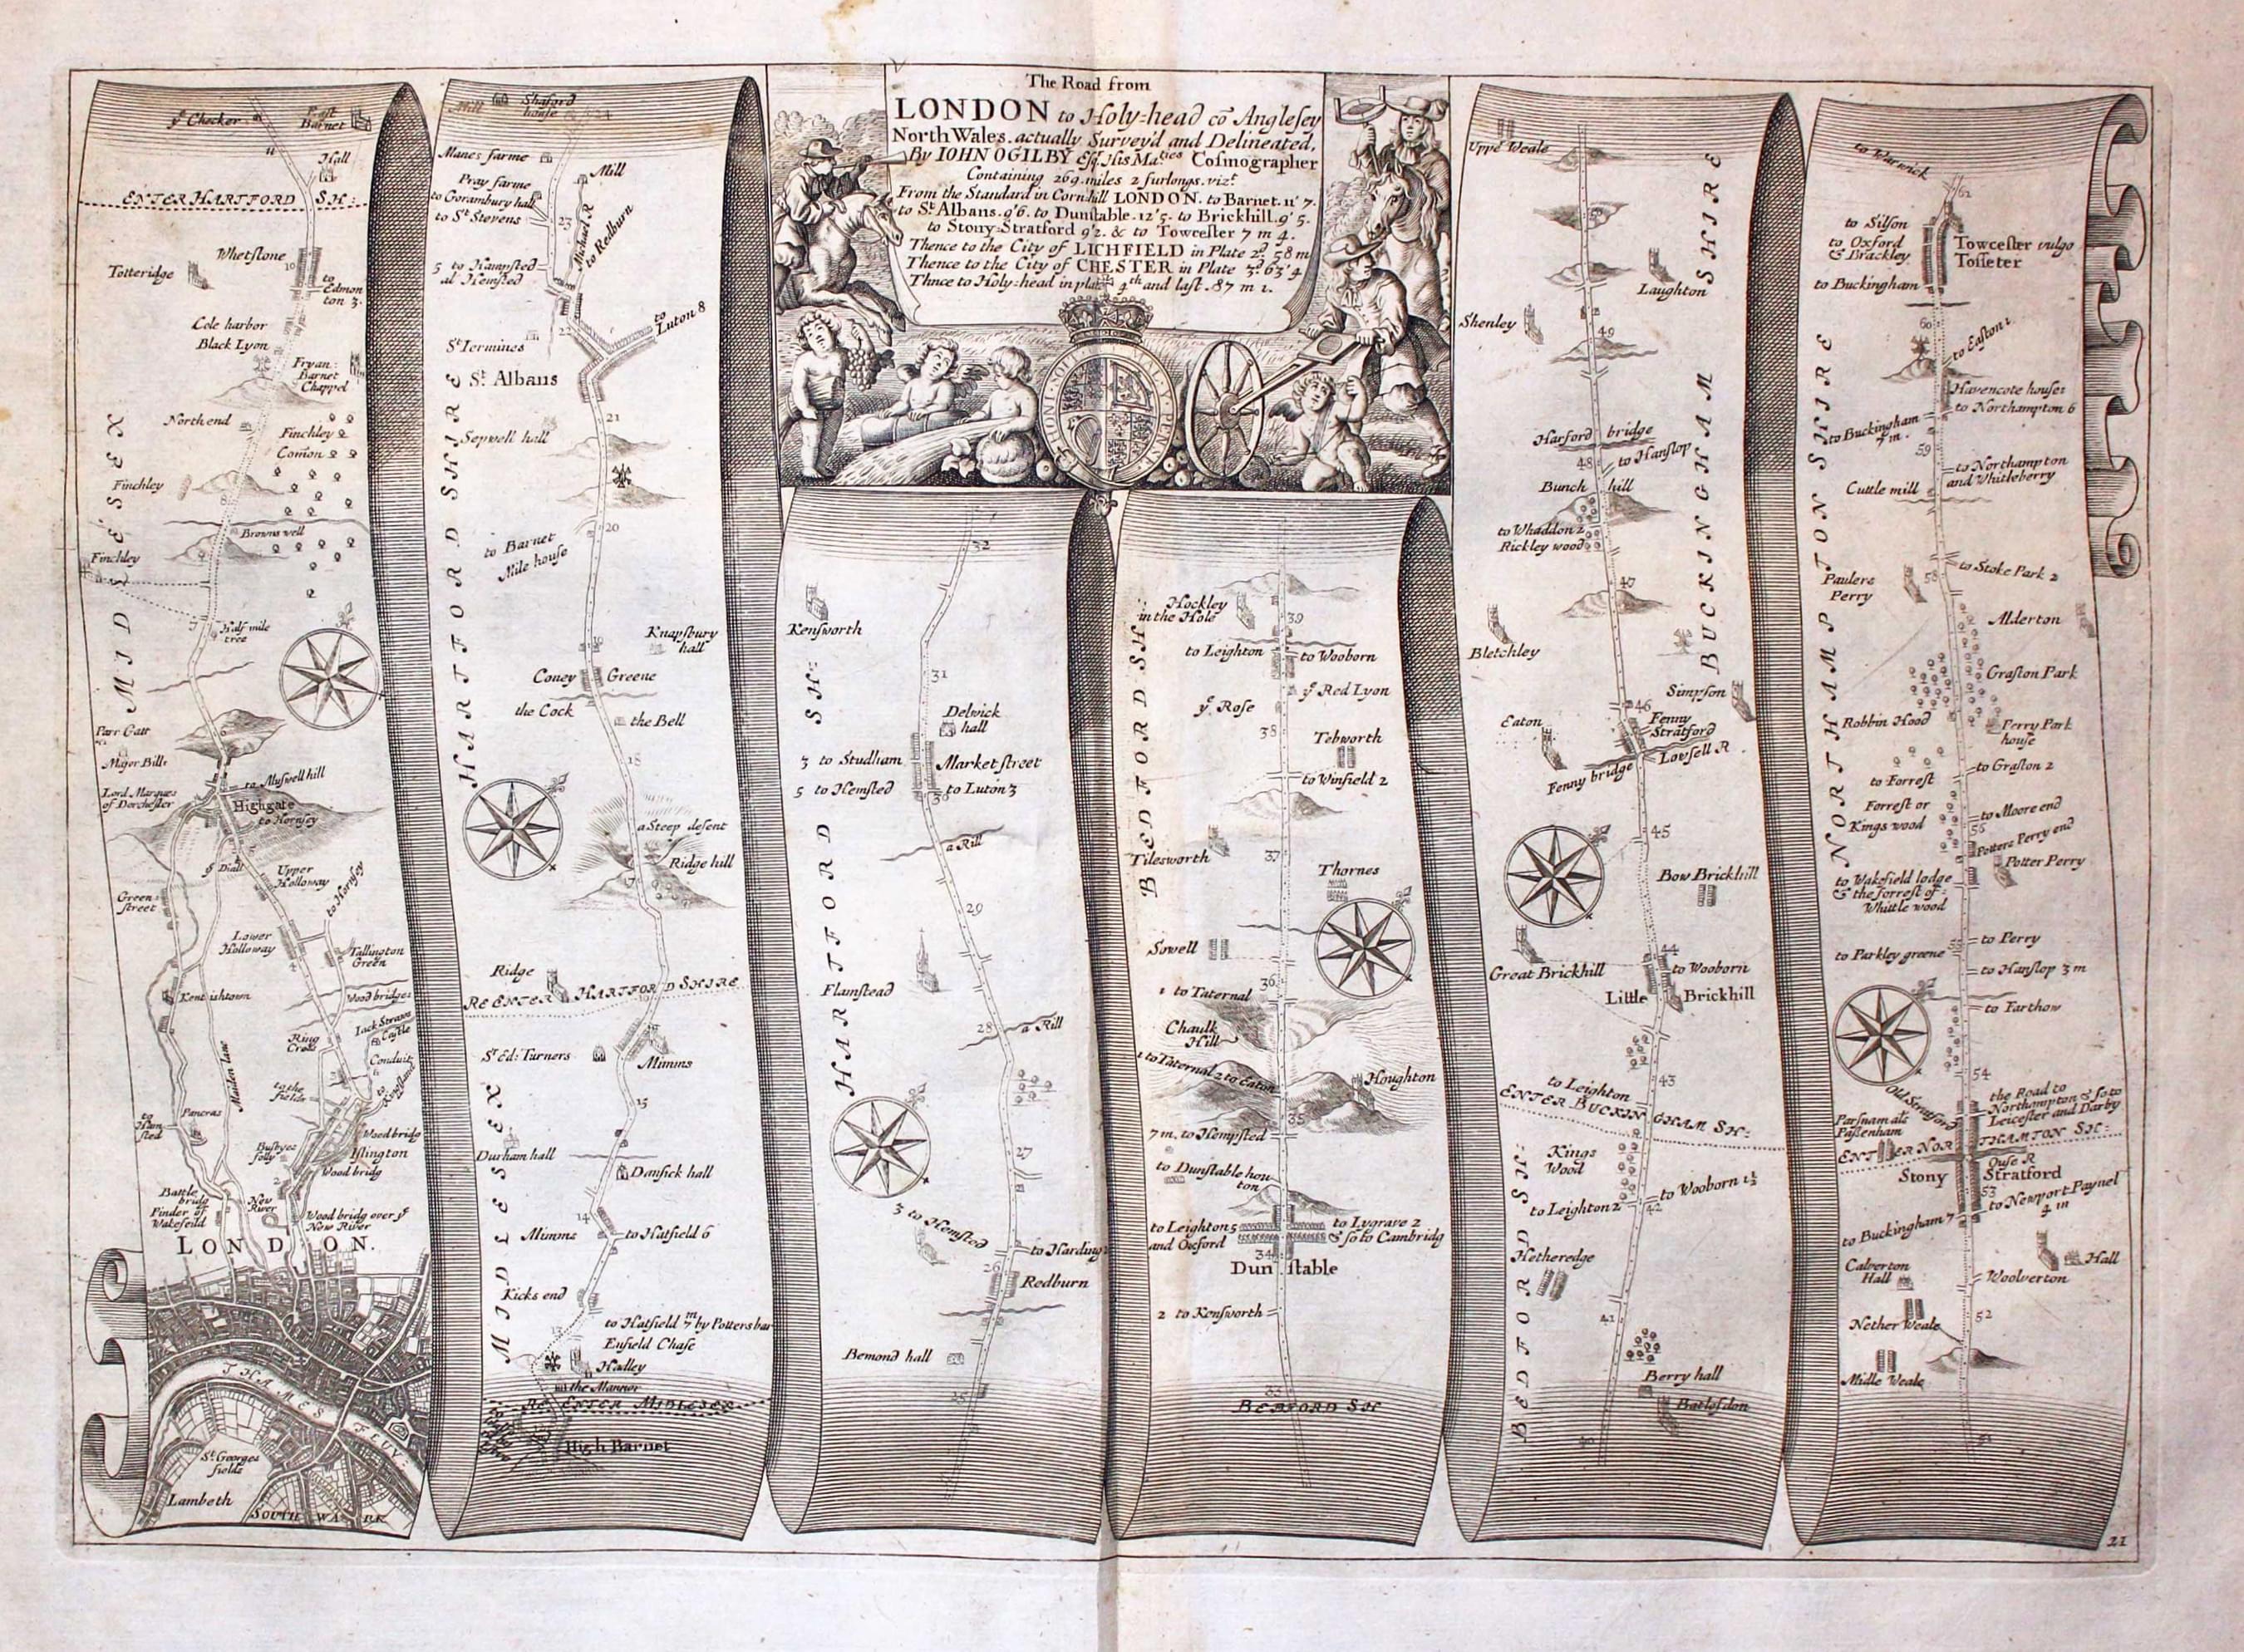 The Road from
LONDON to Holy=head cõ Anglesey
North Wales. actually Survey'd and Delineated,
By IOHN OGILBY Esq. His Ma.ties Cosmographer
Containing 269. miles 2 furlongs. viz.t
From the Standard in Cornhill LONDON. to Barnet. 11' 7.
to S.t Albans. 9'6. to Dunstable. 12'5. to Brickhill. 9' 5.
to Stony=Stratford 9'2. & to Towcester 7 m 4.
Thence to the City of LICHFIELD in Plate 2.d 58 m
Thence to the City of CHESTER in Plate 3.d 63'4
Thnce to Holy=head in plate 4.th and last. 87 m 1.
y.e Checker
East
Barnet
11
Hall
ENTER HARTFORD SH:
Whetstone
10
Totteridge
to
Edmon
ton 3.
Cole harbor
Black Lyon
Fryan
Barnet
Chappel
North end
Finchley
Com̃on
Finchley
8
Browns well
Finchley
MIDLESEX
7
Half mile
tree
6
Parr Gatt
Major Bills
to Muswell hill
Lord Marques
of Dorchester
Highgate
to Hornsey
5
y.e Diall
Upper
Holloway
to Hornsey
Green
street
Lower
Holloway
4
Tallington
Green
Kentishtown
Wood bridges
Iack Straws
Castle
Ring
Cross
Conduit
3
to the
fields
to
Kingsland
Maiden lane
Pancras
to
Ham
sted
Wood bridg
Busbyes
folly
Islington
Wood bridg
2
Battle
bridg
Pinder of
Wakefeild
New
River
Wood bridg over y.e
New River
LONDON.
THAMES FLUV:
S.t Georges
fields
Lambeth
SOUTHWARK
Mill
Shaford
house
24
Manes farme
Mill
Pray farme
to Gorambury hall
to S.t Stevens
23
Michael R
to Redburn
5 to Hampsted
al Hemsted
22
to
Luton 8
S.t Iermines
S.t Albans
21
Sepwell hall
20
to Barnet
Mile house
HARTFORD SHIRE
19
Knapsbury
hall
Coney Greene
the Cock
the Bell
18
a Steep desent
Ridge hill
17
Ridge
RE ENTER HARTFORD SHIRE
16
S.t Ed: Turners
Mimms
15
Durham hall
Dansick hall
14
Mimms
to Hatfield 6
MIDLESEX
Kicks end
to Hatfield 7 m by Potters bar
13
Enfield Chase
Hadley
the Mannor
RE ENTER MIDLESEX
High Barnet
32
Kensworth
31
Delwick
hall
3 to Studham
Market street
5 to Hemsted
30
to Luton 3
a Rill
HARTFORD SH:
29
Flamstead
28
a Rill
27
3 to Hemsted
to Harding
26
Redburn
Bemond hall
25
Hockley
in the Hole
39
to Leighton
to Wooborn
y.e Red Lyon
y.e Rose
38
Tebworth
to Winfield 2
BEDFORD SH
Tilesworth
37
Thornes
Sowell
36
1 to Taternal
Chaulk
Hill
1 to Taternal 2 to Eaton
Houghton
35
7 m. to Hempsted
to Dunstable hou
ton
to Leighton 5
and Oxford
to Lygrave 2
& so to Cambridg
34
Dunstable
2 to Kensworth
33
BEDFORD SH
Uppe Weale
Laughton
Shenley
49
Harford bridge
48
to Hanslop
Bunch hill
to Whaddon 2
Rickley wood
47
BUCKINGHAM SHIRE
Bletchley
Simpson
46
Eaton
Fenny
Stratford
Lowsell R
Fenny bridge
45
Bow Brickhill
44
Great Brickhill
to Wooborn
Little Brickhill
43
to Leighton
ENTER BUCKINGHAM SH:
Kings
Wood
to Wooborn 1½
to Leighton 2
42
Hetheredge
BEDFORD SH:
41
Berry hall
Batlesdon
40
to Warwick
61
to Silson
to Oxford
& Brackley
Towcester vulgo
Tosseter
to Buckingham
60
to Easton 1.
Havencote houses
to Northampton 6
to Buckingham
7 m.
59
to Northampton
and Whitleberry
Cuttle mill
to Stoke Park 2
58
Paulers
Perry
Alderton
NORTHAMPTON SHIRE
Grafton Park
Robbin Hood
Perry Park
house
to Forrest
to Grafton 2
Forrest or
Kings wood
to Moore end
56
Potters Perry end
Potter Perry
to Wakefield lodge
& the forrest of
Whittle wood
to Perry
to Parkley greene
55
to Hanslop 3 m
to Farthow
54
Old Stratford
the Road to
Northampton & so to
Leicester and Darby
Parsnam als
Passenham
ENTER NORTHAMTON SH:
Ouse R
Stony Stratford
53
to Newport Paynel
4 m
to Buckingham 7
Hall
Calverton
Hall
Woolverton
52
Nether Weale
Midle Weale
51
21